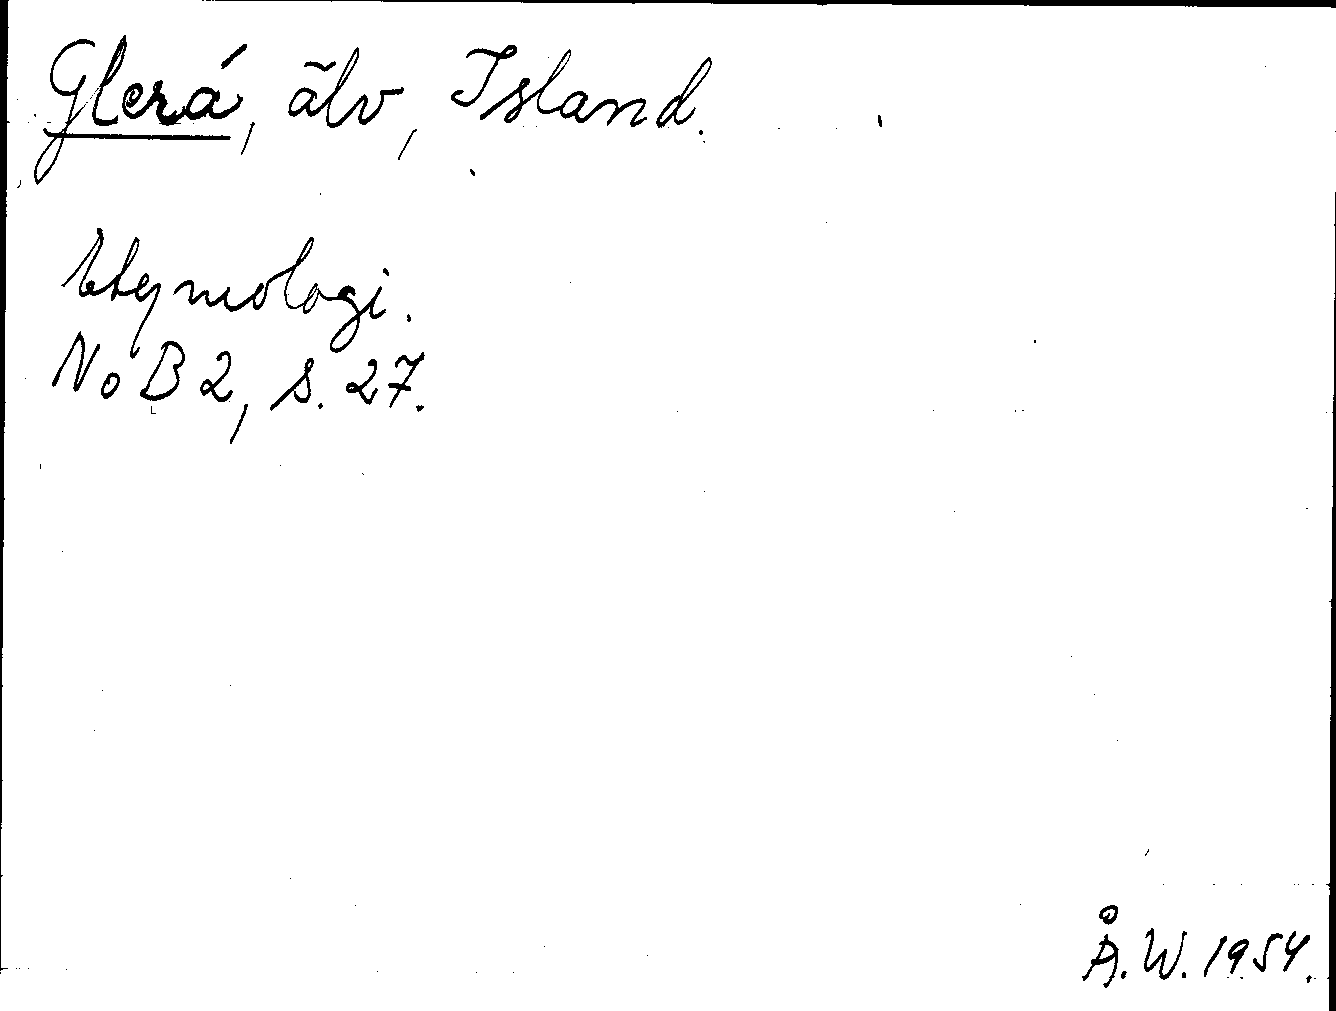 Glerá, älv, Island.
Etymologi.
NoB 2, s. 27.
Å. W. 1954.